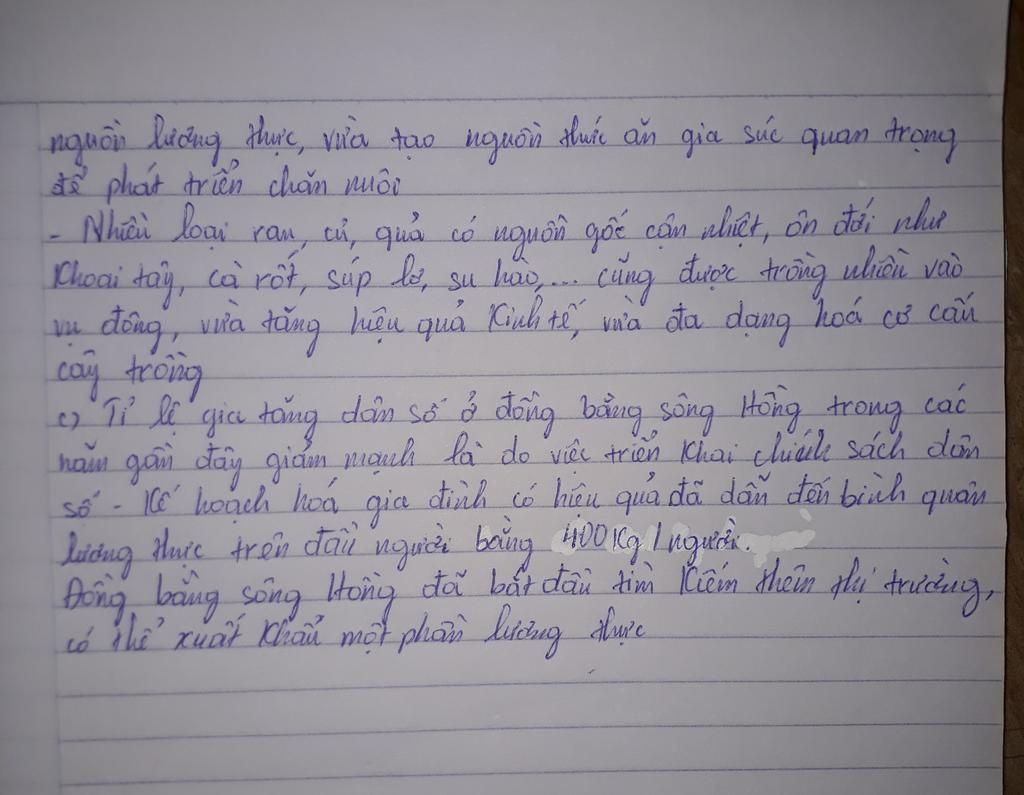 nguồn lương thực, vừa tạo nguồn thức ăn gia súc quan trọng
để phát triển chăn nuôi
- Nhiều loại rau, củ, quả có nguồn gốc cận nhiệt, ôn đới như
Khoai tây, cà rốt, súp lơ, su hào,... cũng được trồng nhiều vào
vụ đông, vừa tăng hiệu quả Kinh tế, vừa đa dạng hoá cơ cấu
cây trồng
c) Tỉ lệ gia tăng dân số ở đồng bằng sông Hồng trong các
năm gần đây giảm mạnh là do việc triển Khai chính sách dân
số - Kế hoạch hoá gia đình có hiệu quả đã dẫn đến bình quân
lương thực trên đầu người bằng 400 Kg / người.
Đồng bằng sông Hồng đã bắt đầu tìm Kiếm thêm thị trường,
có thể xuất Khẩu một phần lương thực